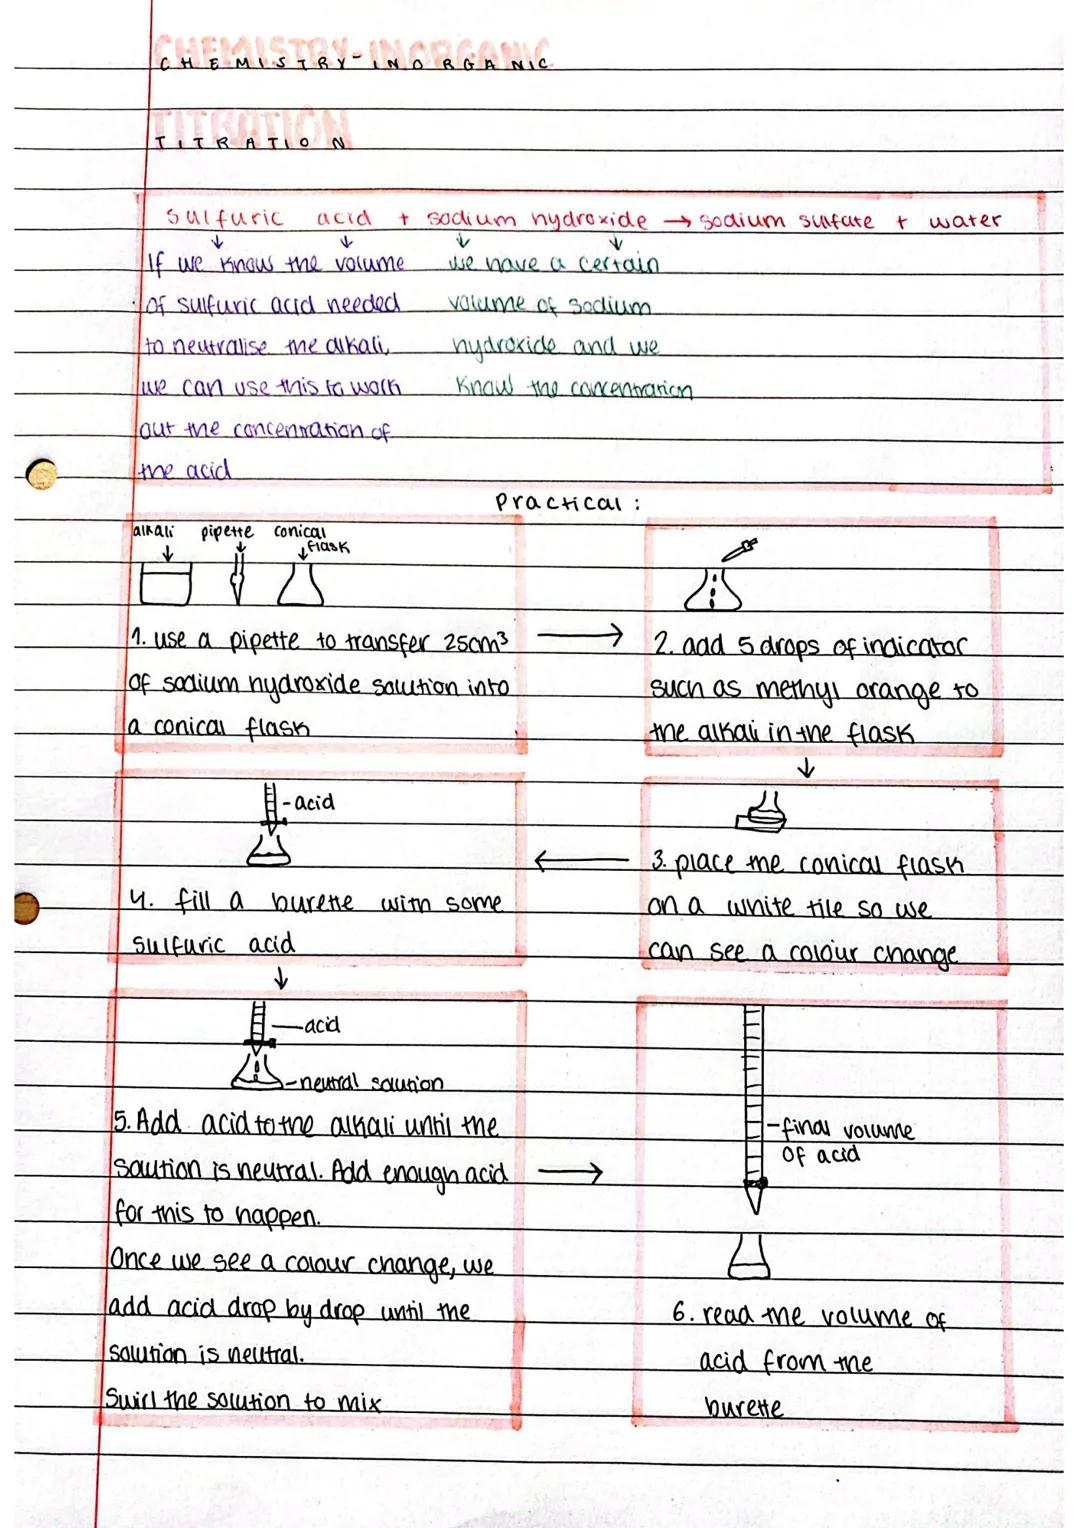 CHEMISTRY-INORGANIC
CHEMISTRY-INORGANIC
TITRATION
TITRATION
Sulfuric acid + sodium hydroxide → sodium sulfate + water
If we know the volume
of sulfuric acid needed
to neutralise the alkali,
we can use this to work
out the concentration of
the acid
we have a certain
volume of sodium
hydroxide and we
know the concentration
Practical :
alkali pipette conical
flask
1. use a pipette to transfer 25cm³
of sodium hydroxide solution into
a conical flask
2. add 5 drops of indicator
such as methyl orange to
the alkali in the flask
3. place the conical flask
on a white tile so we
can see a colour change
-acid
4. fill a burette with some
sulfuric acid
-acid
-neutral solution
5. Add acid to the alkali until the
solution is neutral. Add enough acid
for this to happen.
Once we see a colour change, we
add acid drop by drop until the
solution is neutral.
Swirl the solution to mix
-final volume
of acid
6. read the volume of
acid from the
burette